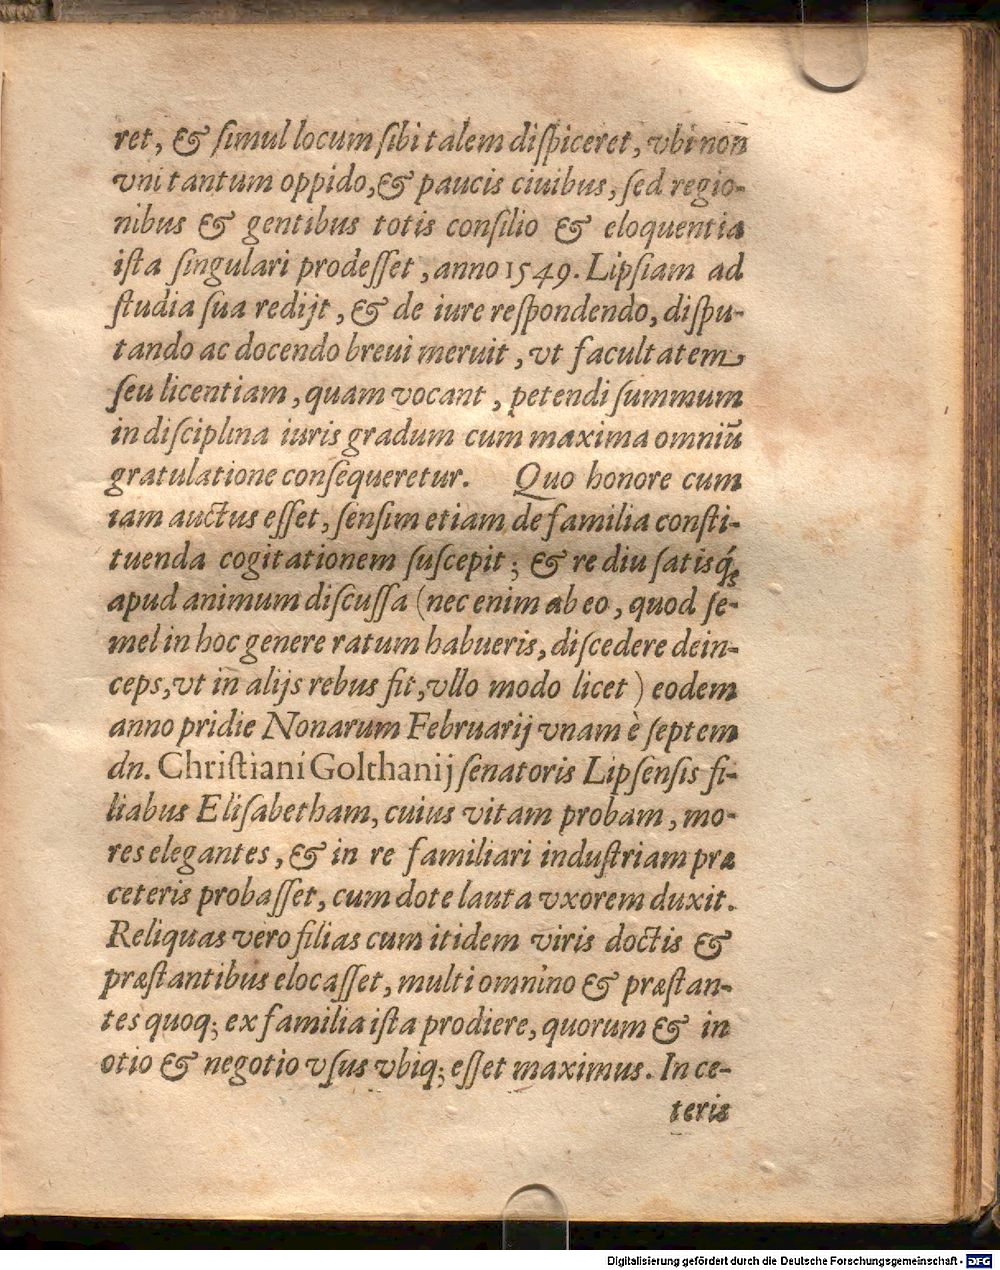 ret, & ſimul locum ſibi talem diſpiceret, vbi non
vni tantum oppido, & paucis ciuibus, ſed regio-
nibus & gentibus totis conſilio & eloquentia
iſta ſingulari prodeſſet, anno 1549. Lipſiam ad
ſtudia ſua redijt, & de iure reſpondendo, diſpu-
tando ac docendo breui meruit, vt facultatem
ſeu licentiam, quam vocant, petendi ſummum
in diſciplina iuris gradum cum maxima omniũ
gratulatione conſequeretur. Quo honore cum
iam auctus eſſet, ſenſim etiam de familia conſti-
tuenda cogitationem ſuſcepit; & re diu ſatisq́;
apud animum diſcuſſa (nec enim ab eo, quod ſe-
mel in hoc genere ratum habueris, diſcedere dein-
ceps, vt in alijs rebus fit, vllo modo licet) eodem
anno pridie Nonarum Februarij vnam è ſeptem
dn. Chriſtiani Golthanij ſenatoris Lipſenſis fi-
liabus Eliſabetham, cuius vitam probam, mo-
res elegantes, & in re familiari induſtriam præ
ceteris probaſſet, cum dote lauta vxorem duxit.
Reliquas vero filias cum itidem viris doctis &
præſtantibus elocaſſet, multi omnino & præſtan-
tes quoq; ex familia iſta prodiere, quorum & in
otio & negotio vſus vbiq; eſſet maximus. In ce-
teris
Digitalisierung gefördert durch die Deutsche Forschungsgemeinschaft - DFG